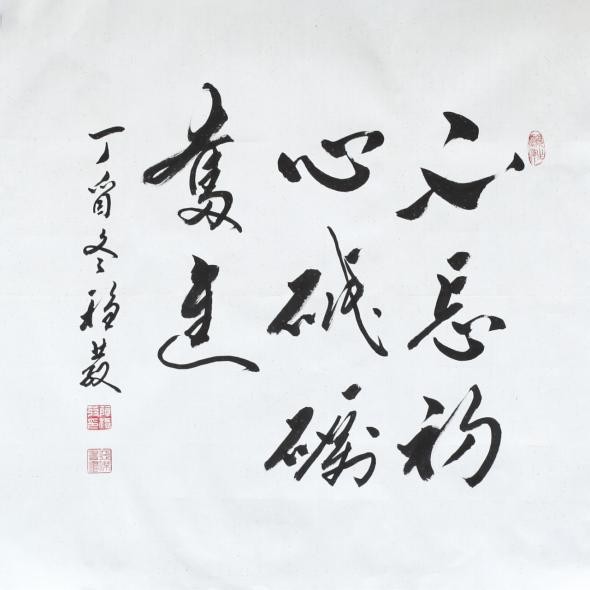 不忘初
心砥礪
奮進
丁酉冬穩發